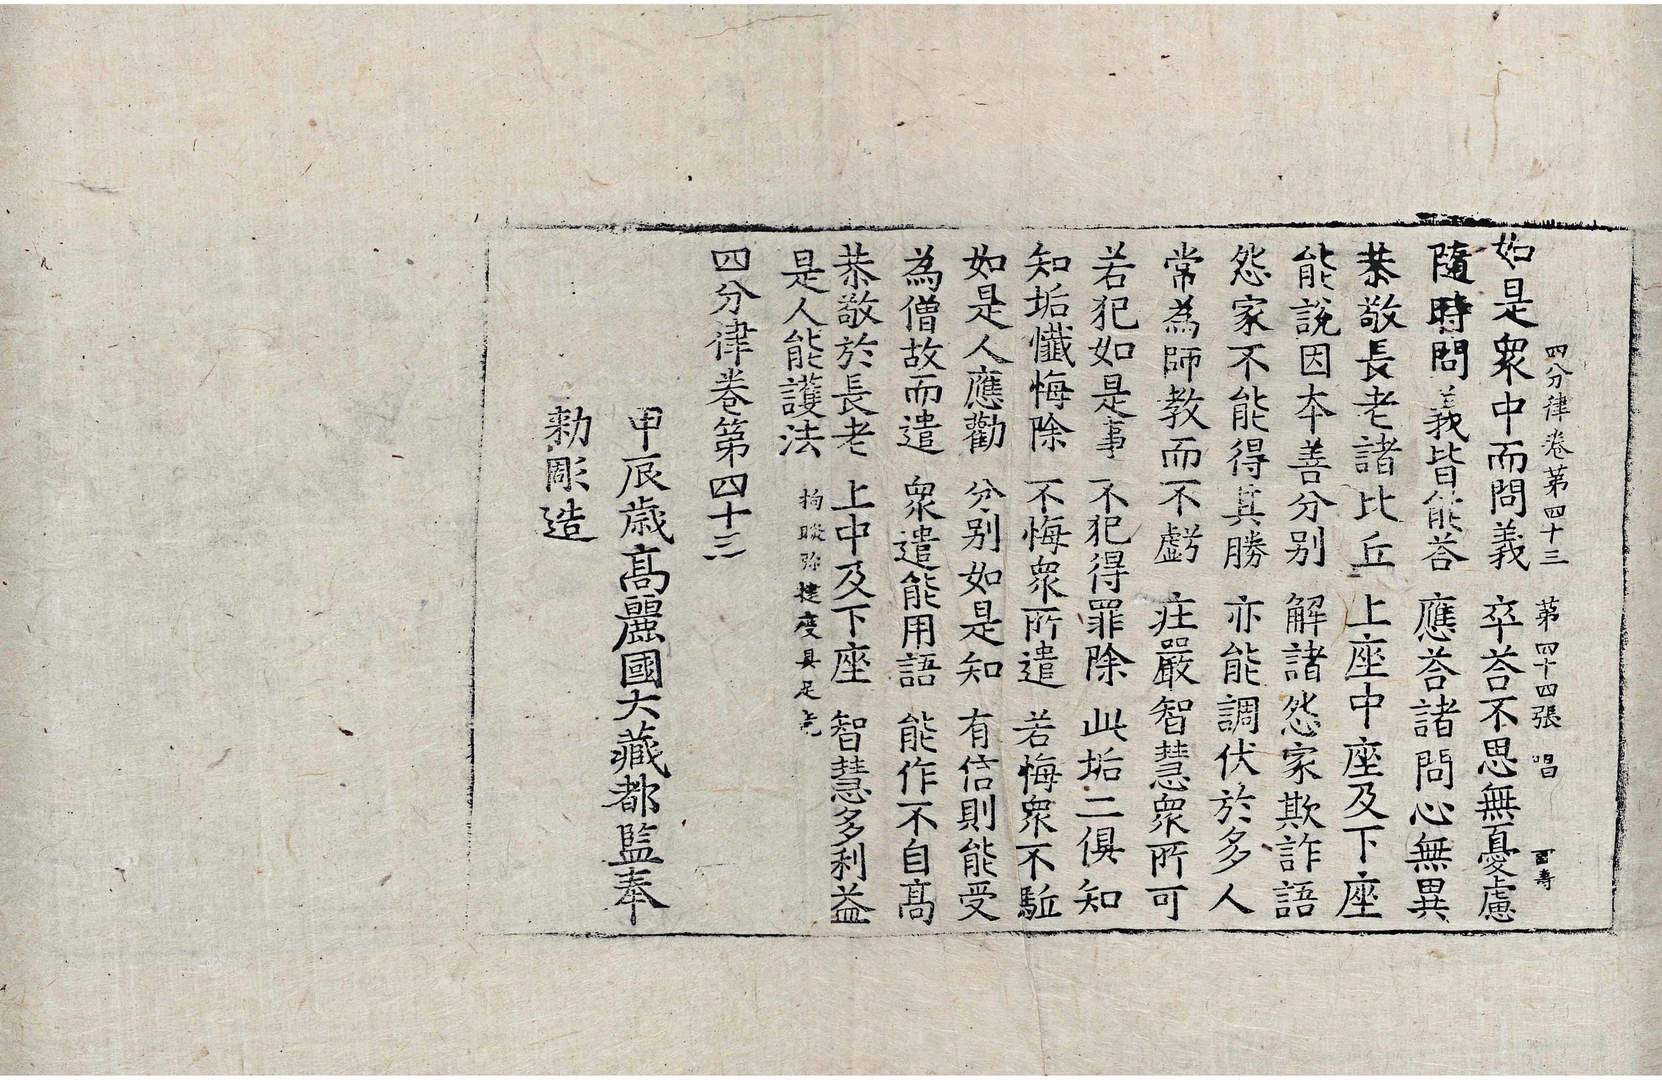 四分律卷第四十三 第四十四張 唱
如是衆中而問義 卒荅不思無憂慮
隨時問義皆能荅 應荅諸問心無異
恭敬長老諸比丘 上座中座及下座
能說因本善分別 解諸怨家欺詐語
怨家不能得其勝 亦能調伏於多人
常為師教而不虧 疘嚴智慧衆所可
若犯如是事 不犯得罪除 此垢二俱知
知垢懺悔除 不悔衆所遣 若悔衆不駈
如是人應勸 分別如是知 有信則能受
為僧故而遣 衆遣能用語 能作不自髙
恭敬於長老 上中及下座 智慧多利益
是人能護法 拘睒弥揵度具足竟
四分律卷第四十三
甲辰歲髙麗國大藏都監奉
勑彫造